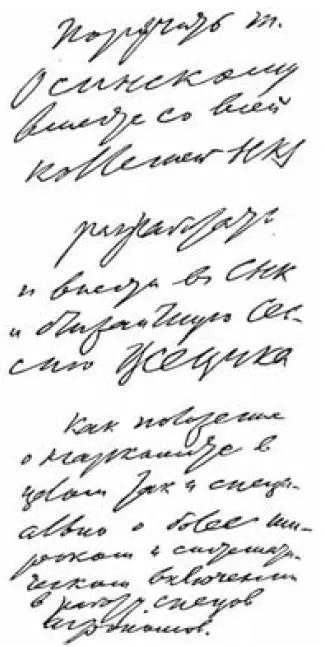 Поручить т.
Осинскому
вместе со всей
коллегией НКЗ
разработать
и внести в СНК
и ближайшую сес-
сию ВЦИКа
Как положение
о наркомате в
целом так и специ-
ально о более ши-
роком и системати-
ческом включении
в работу спецов
агрономов.